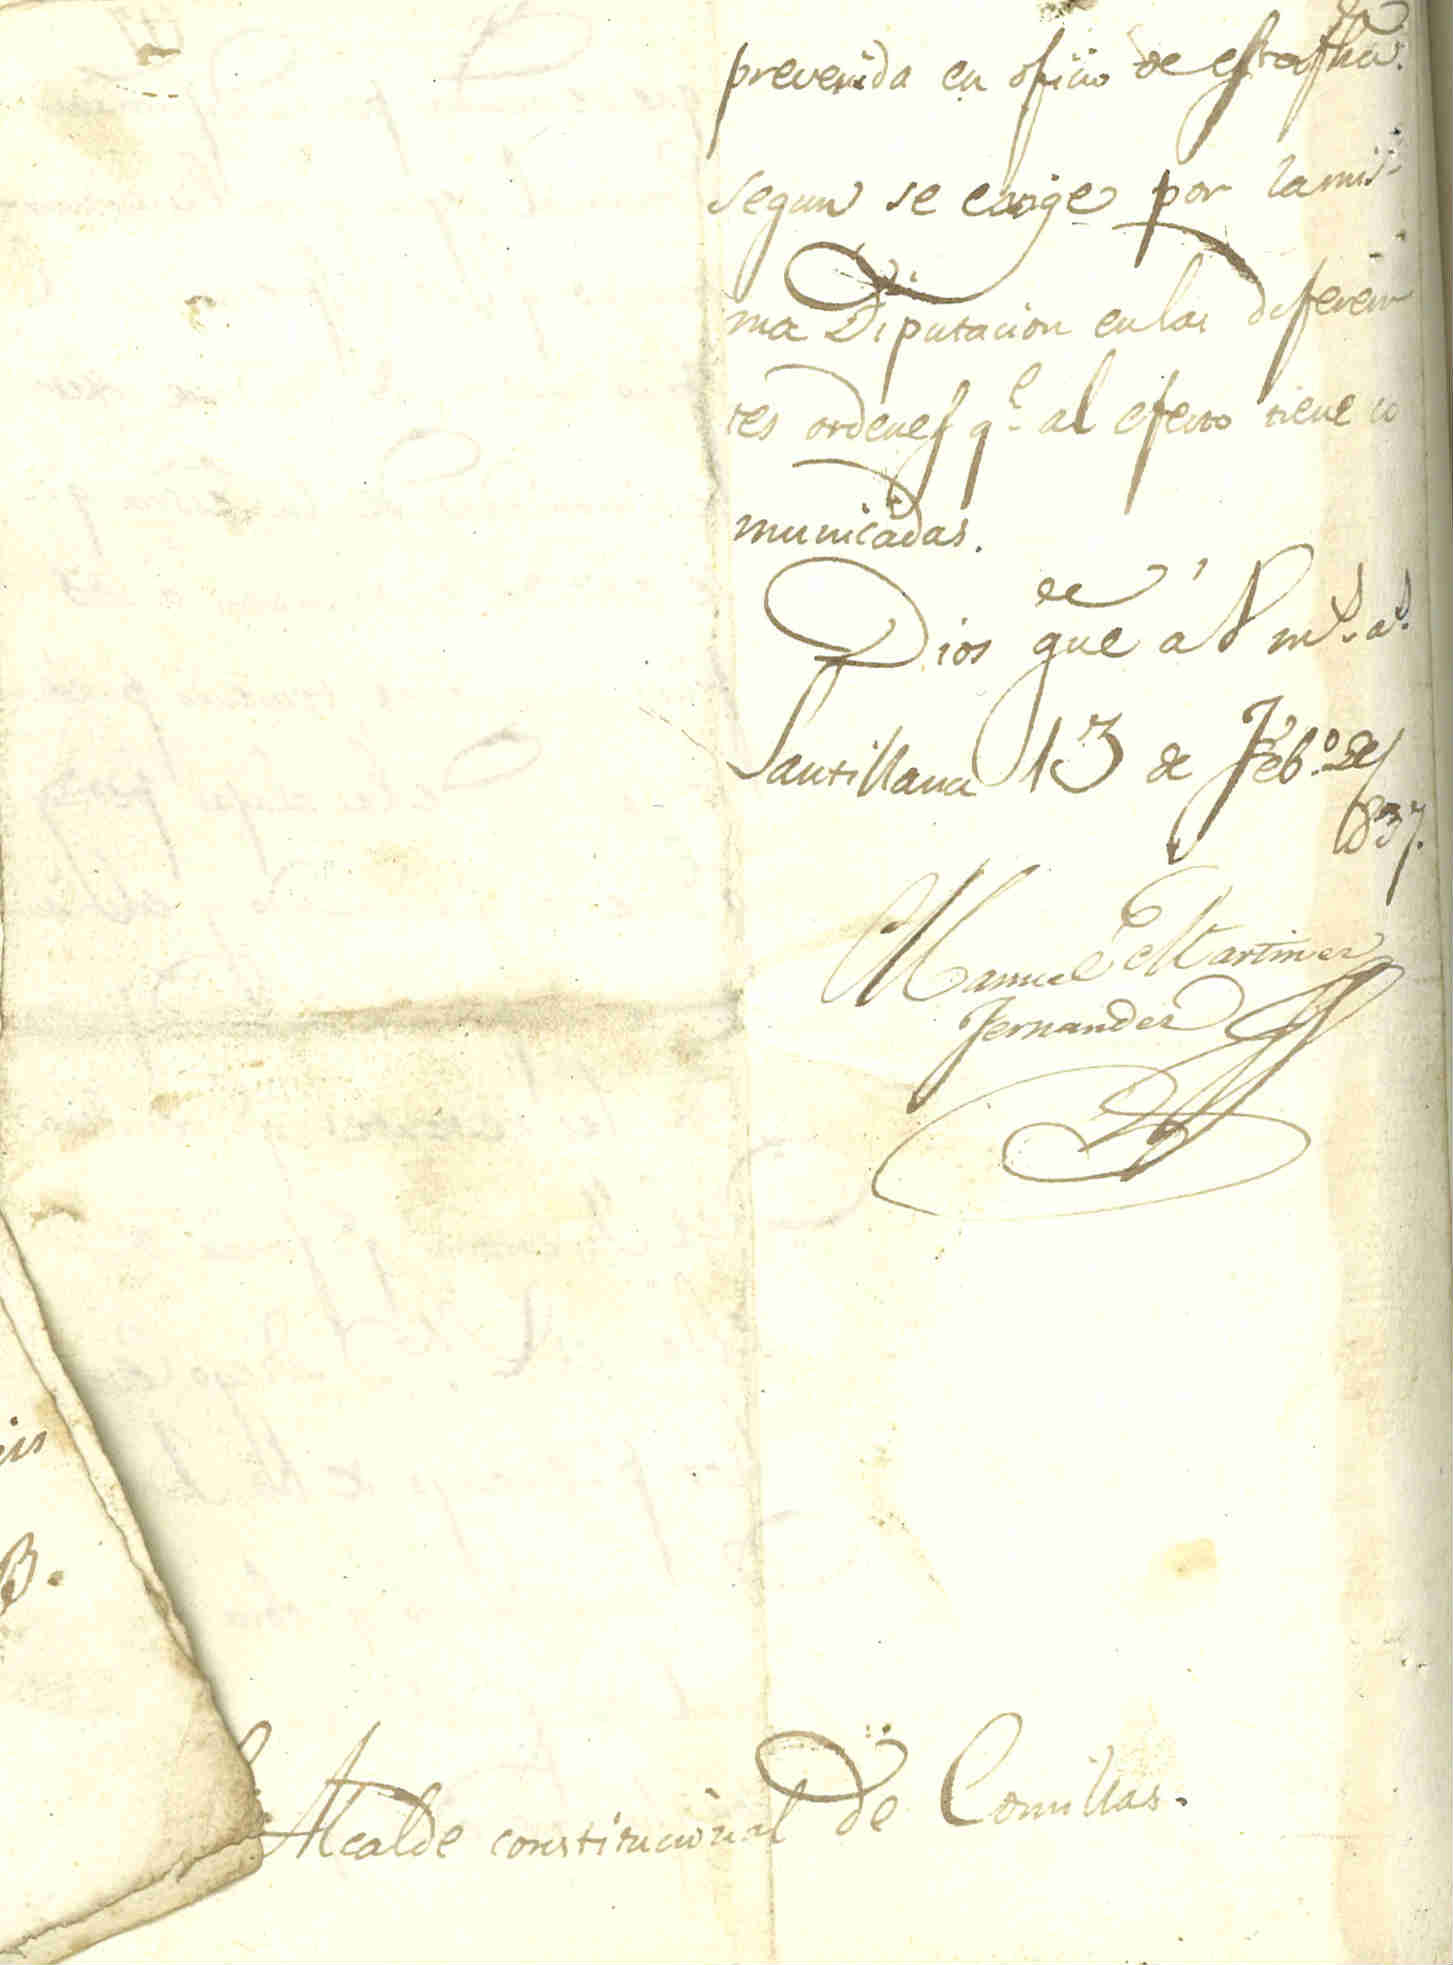 prevenida en oficio de esta fha.
segun se exige por la mis-
ma Diputacion en las diferen
tes ordenes q.e al efecto tiene co
municadas.
Dios gue á V m.s a.s
Santillana 13 de Feb.o de
1837.
Manuel Martinez
Fernandez
Alcalde constitucional de Comillas.
B.